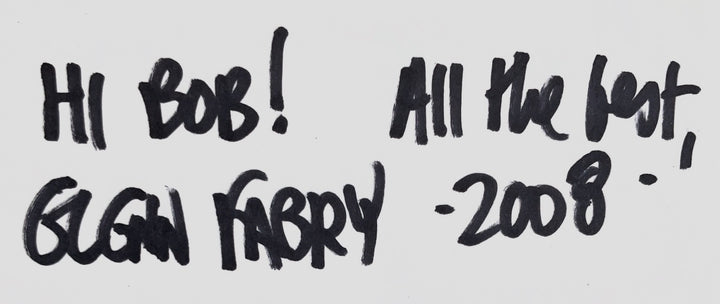 HI BOB! All the best,
GLENN FABRY -2008-